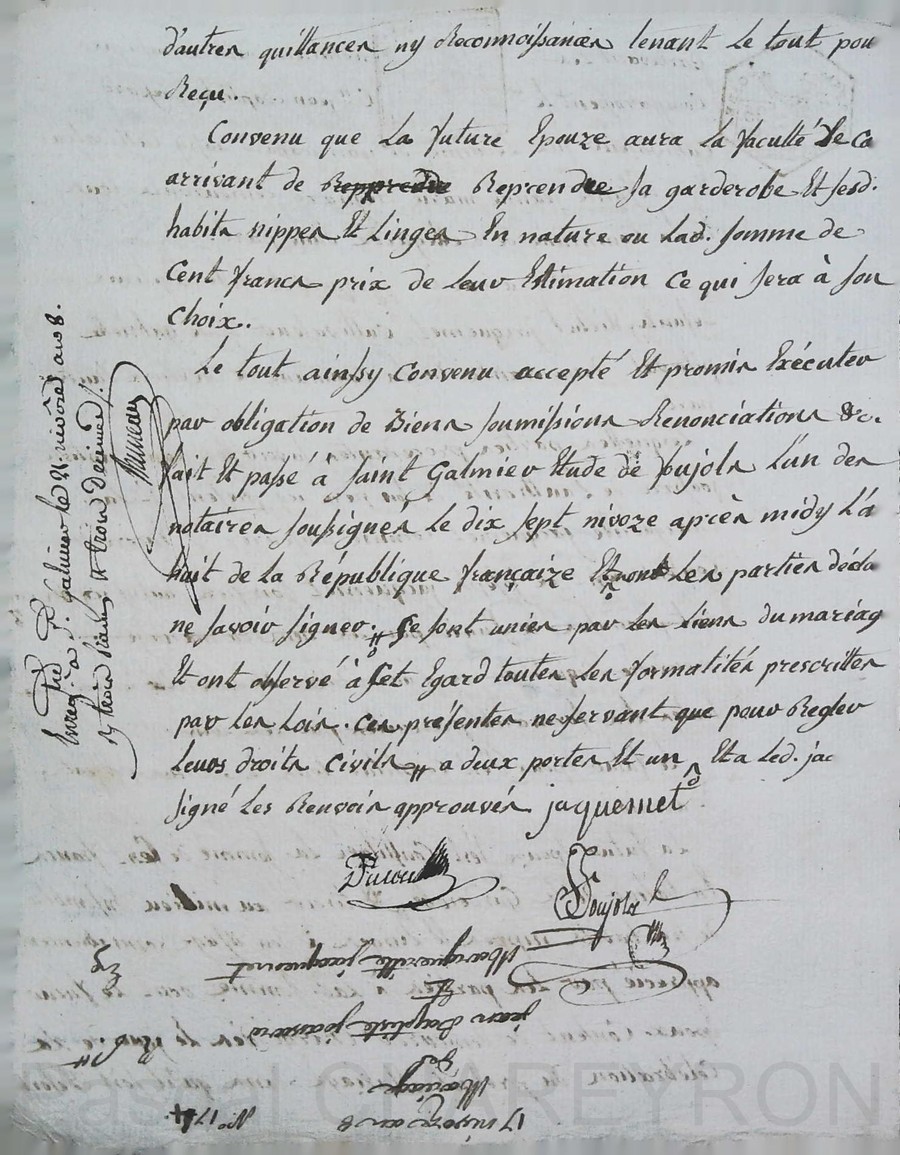 d'autres quittances ny Reconnoissances tenant Le tout pou
Reçu.
Convenu que La future Epouze aura La faculté Le ca
arrivant de Repprendre Reprendre sa garderobe Et sesd.
habits nippes Et Linges En nature ou Lad. somme de
Cent francs prix de Leur Estimation Ce qui sera à son
Choix.
Le tout ainssy Convenu accepté Et promis Exécuter
par obligation de Biens soumissions Renonciations &c.
fait Et passé à saint Galmier Etude de poujols L'un des
notaires soussignés Le dix sept nivoze après midy L'a
huit de La République françaize Et ont Les parties décla
ne savoir signer. se sont unies par Les Liens du mariag
Et ont observé à cet Egard toutes Les formalités prescrittes
par Les Lois. Ces présentes ne servant que pour Regler
Leurs droits Civils a deux portes Et un Et a Led. jac
signé Les Renvois approuvés jaquemet
Poujols
Enregtré à St. Galmier Le 21 nivose an 8.
trois francs Et trois Decimes
17 nivoze an 8
No. 174
Mariage
des
jean Baptiste
Et
Margueritte jacquemet
Pascal CHAREYRON